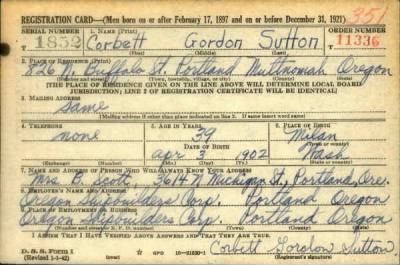 REGISTRATION CARD—(Men born on or after February 17, 1897 and on or before December 31, 1921) 351
SERIAL NUMBER 1. NAME (Print) ORDER NUMBER
1852 Corbett Gordon Sutton 11336
(First) (Middle) (Last)
2. PLACE OF RESIDENCE (Print)
826 N. Buffalo St. Portland Multnomah Oregon
(Number and street) (Town, township, village, or city) (County) (State)
[THE PLACE OF RESIDENCE GIVEN ON THE LINE ABOVE WILL DETERMINE LOCAL BOARD
JURISDICTION; LINE 2 OF REGISTRATION CERTIFICATE WILL BE IDENTICAL]
3. MAILING ADDRESS
Same
[Mailing address if other than place indicated on line 2. If same insert word same]
4. TELEPHONE 5. AGE IN YEARS 6. PLACE OF BIRTH
none 39 Milan
DATE OF BIRTH (Town or county)
Apr 3 1902 Wash
(Exchange) (Number) (Mo.) (Day) (Yr.) (State or country)
7. NAME AND ADDRESS OF PERSON WHO WILL ALWAYS KNOW YOUR ADDRESS
Mrs. Scott, 3614 N Michigan St., Portland, Ore.
8. EMPLOYER'S NAME AND ADDRESS
Oregon Shipbuilders Corp. Portland Oregon
9. PLACE OF EMPLOYMENT OR BUSINESS
Oregon Shipbuilders Corp. Portland Oregon
(Number and street or R. F. D. number) (Town) (County) (State)
I AFFIRM THAT I HAVE VERIFIED ABOVE ANSWERS AND THAT THEY ARE TRUE.
D. S. S. FORM 1
(Revised 1-1-42) (over) GPO 16—21630-1 Corbett Gordon Sutton
(Registrant's signature)